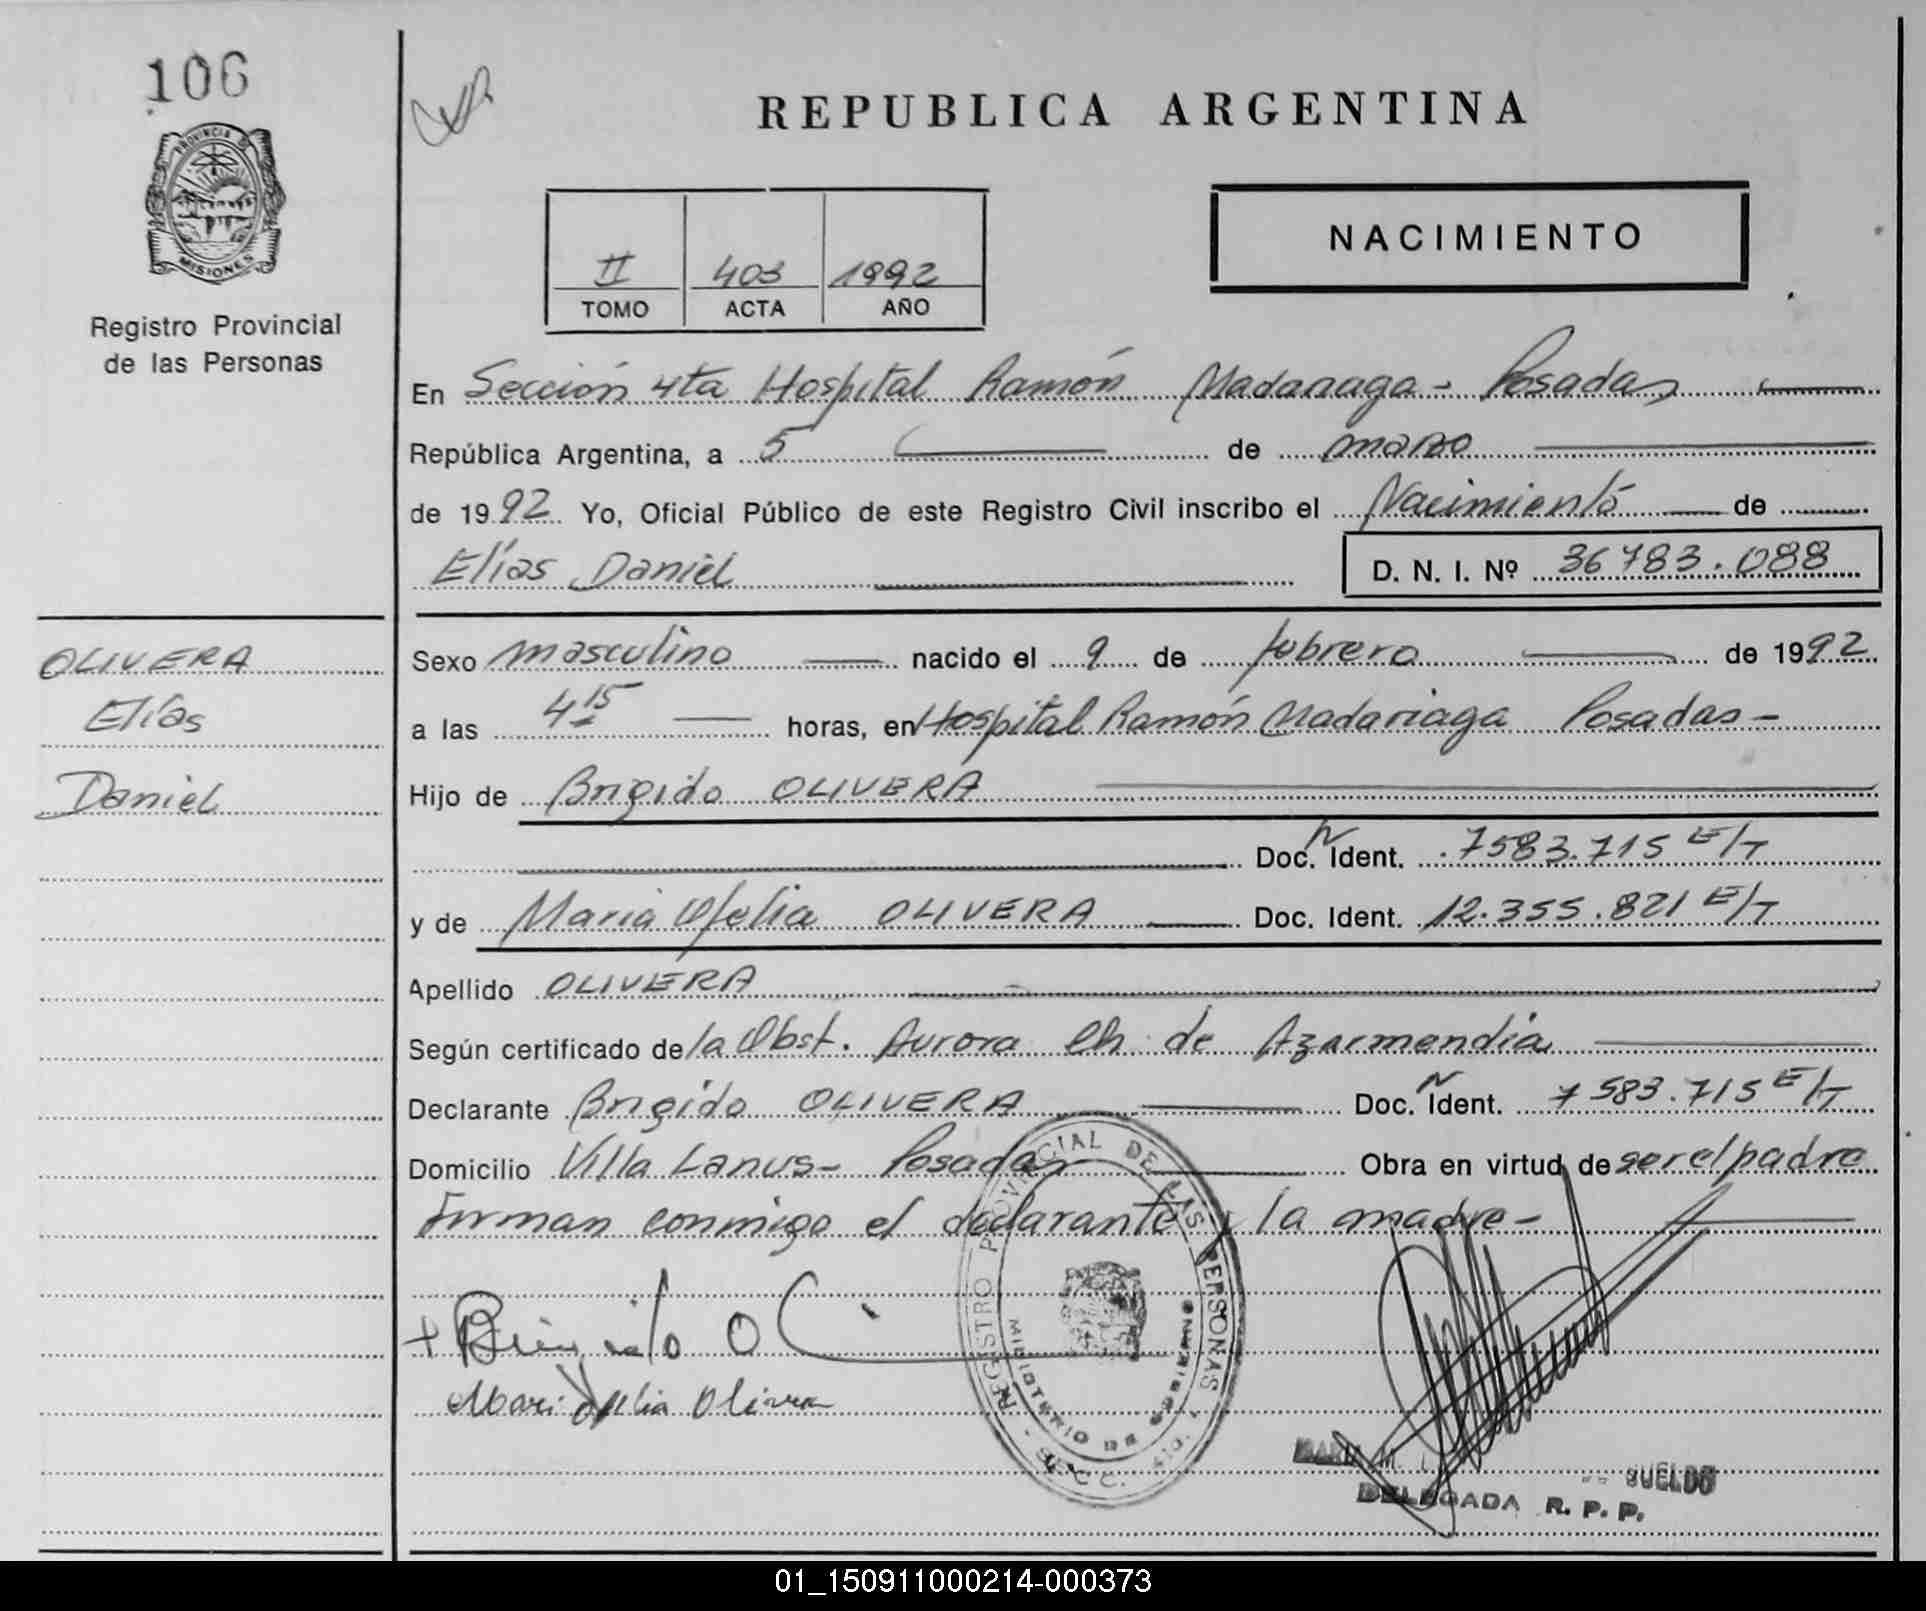 106
REPUBLICA ARGENTINA
PROVINCIA DE
MISIONES
Registro Provincial
de las Personas
II 403 1992
TOMO ACTA AÑO
NACIMIENTO
En Sección 4ta Hospital Ramón Madariaga - Posadas
República Argentina, a 5 de marzo
de 1992 Yo, Oficial Público de este Registro Civil inscribo el Nacimiento de
Elías Daniel D. N. I. Nº 36783.088
OLIVERA
Elías
Daniel
Sexo masculino nacido el 9 de febrero de 1992
a las 4 15 horas, en Hospital Ramón Madariaga Posadas -
Hijo de Brigido OLIVERA
Doc. N Ident. 7583.715 E/T
y de Maria Ofelia OLIVERA Doc. Ident. 12.355.821 E/T
Apellido OLIVERA
Según certificado de la Obst. Aurora Ch de Azarmendia
Declarante Brigido OLIVERA Doc. N Ident. 7583.715 E/T
Domicilio Villa Lanus - Posadas Obra en virtud de ser el padre
Firman conmigo el declarante y la madre -
+ Brigido
Maria Ofelia Olivera
REGISTRO PROVINCIAL DE LAS PERSONAS
MINISTERIO DE GOBIERNO
SUELDO
DELEGADA R. P. P.
01_150911000214-000373